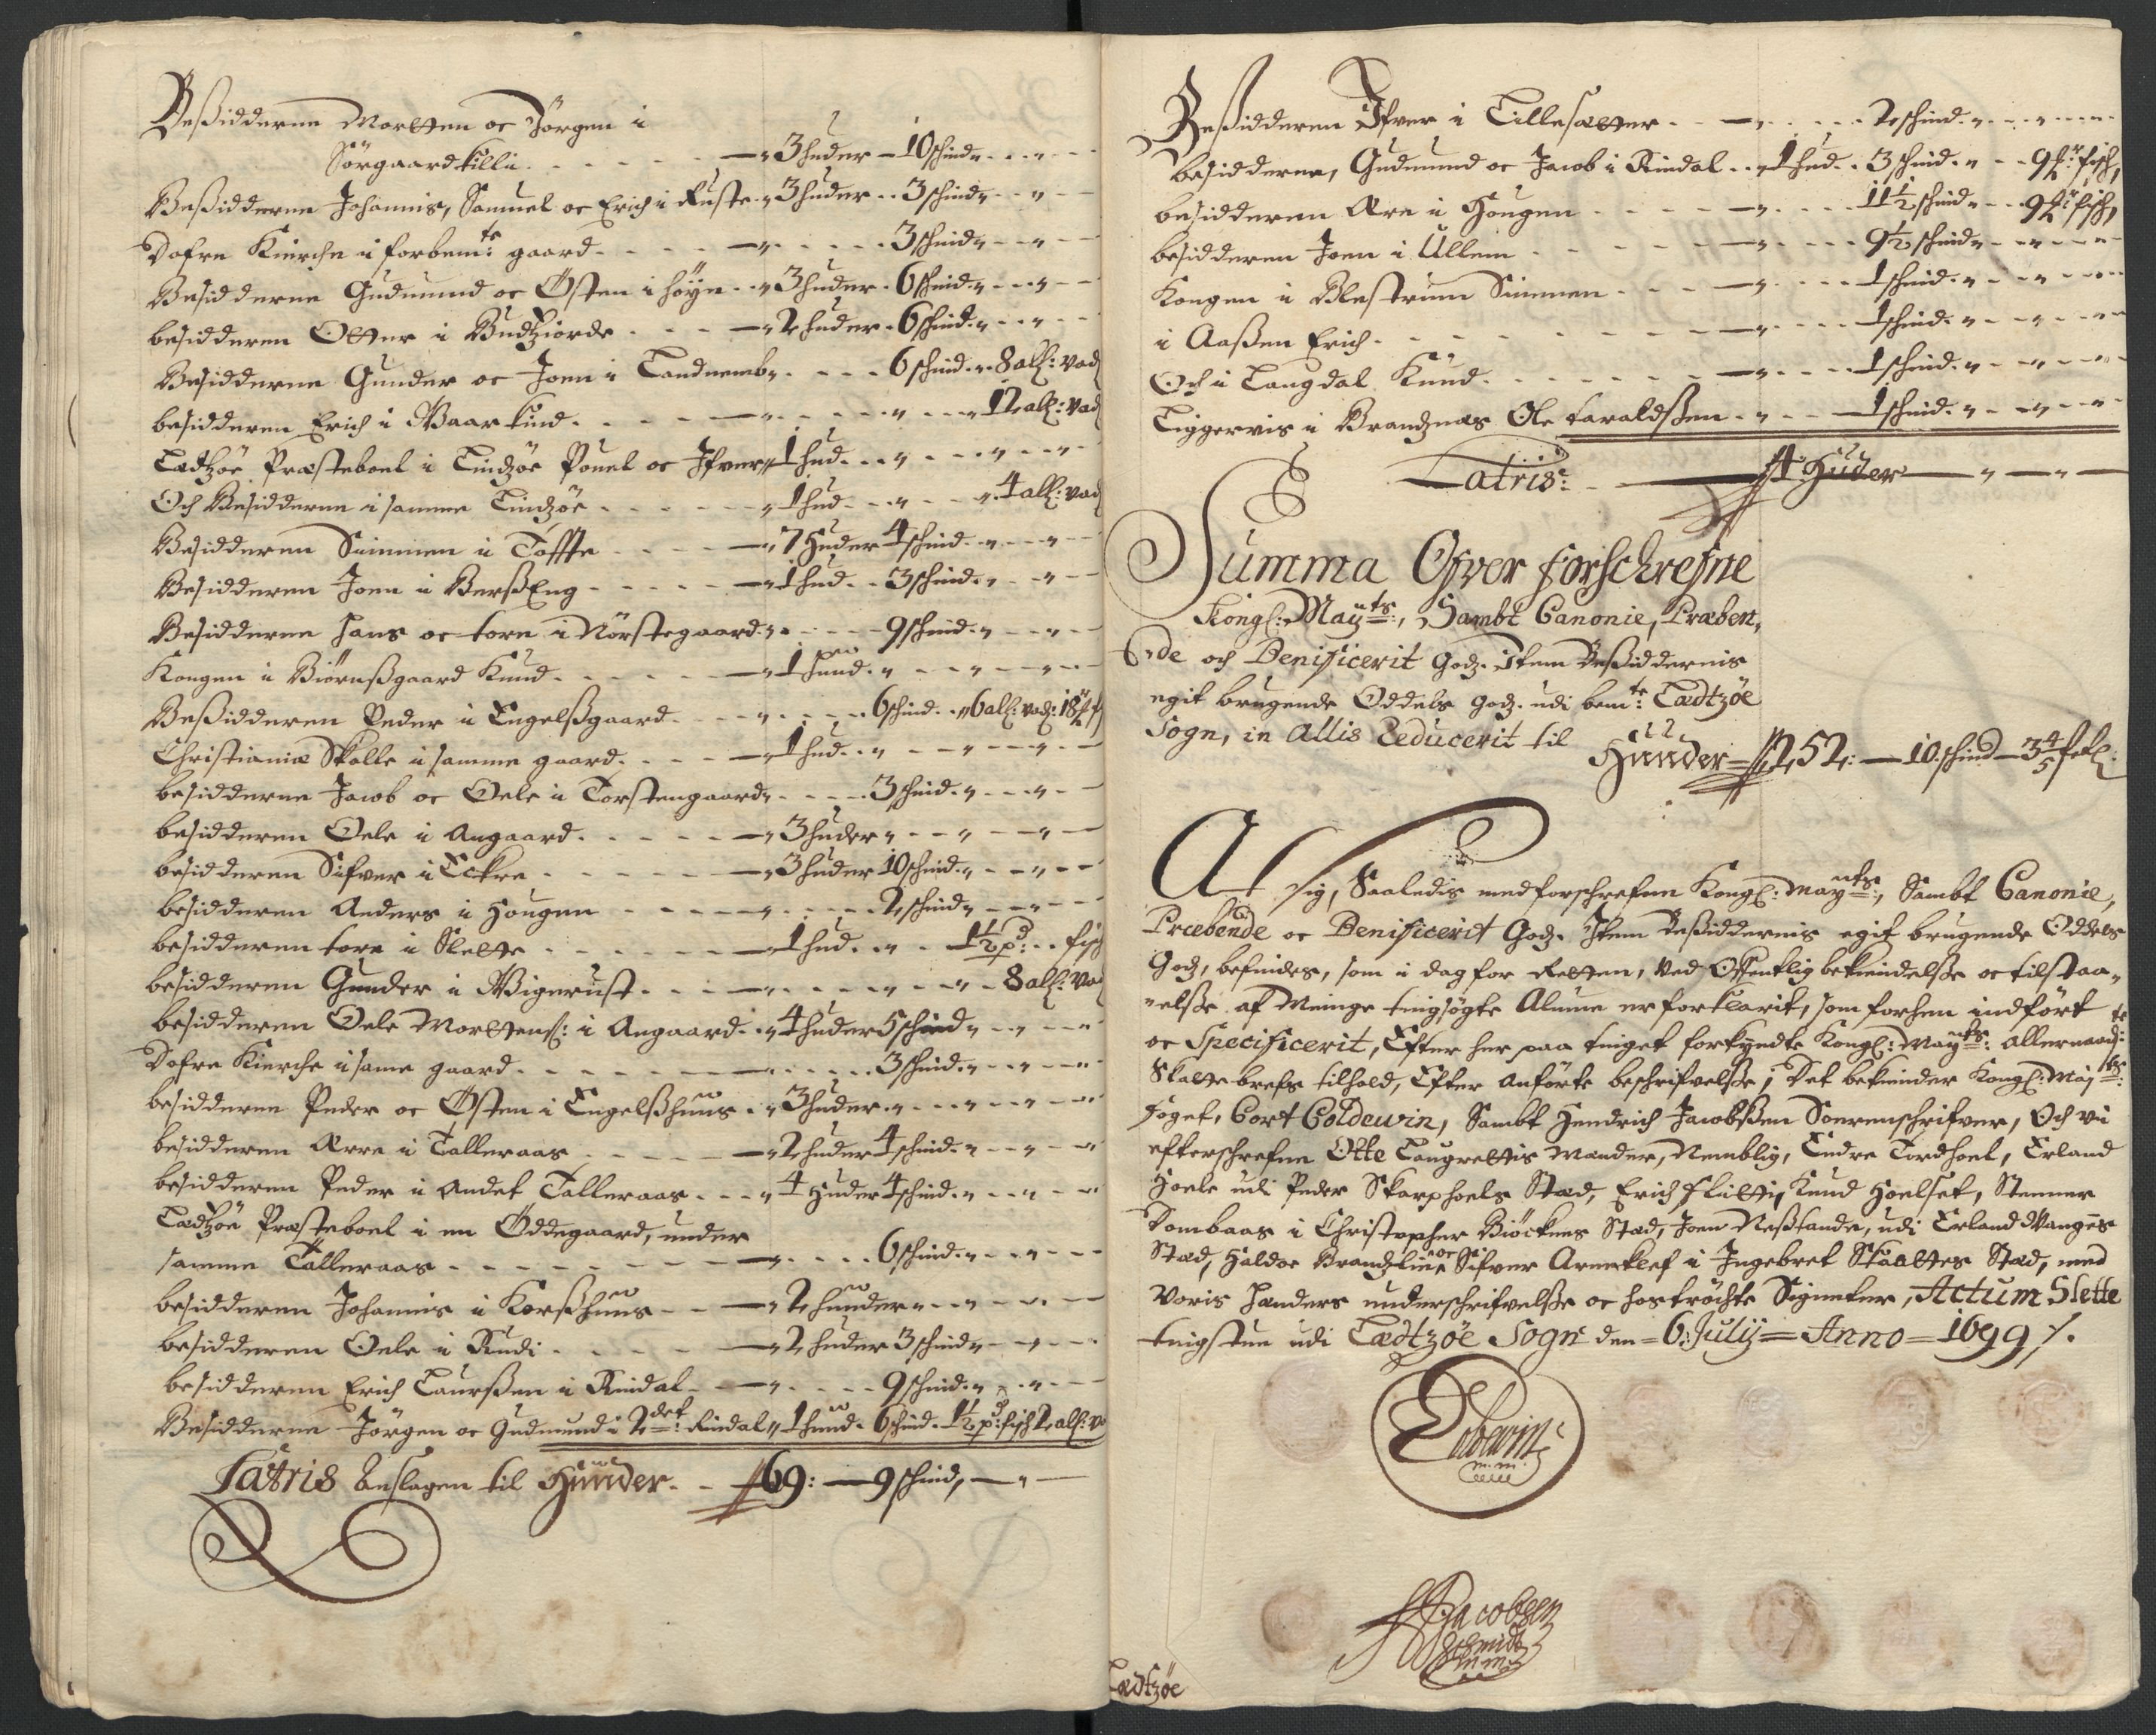 Beßidderne Mortten oc Jörgen i
Sörgaard Killi - - - - " 3 huder - 10 schind " - - " - -
Beßidderne Johannis, Samuel oc Erich i Ruste " 3 huder - 3 schind " - - " - -
Dofre Kierche i forbemte: gaard - - - - " - - - 3 schind " - - " - -
Besidderne Gudmund oc Østen i höye - " 3 huder - 6 schind " - - " - -
besidderen Otter i Budziorde - - - - " 2 huder - 6 schind " - - " - -
Besidderne Gunder oc Joen i Landnemb " - - - 6 schind " 8 all: vad
besidderen Erich i Waarkind - - - - " - - - " - - " 12 all: vad
Lædzöe Præsteboel i Lindzöe Pouel oc Ifver " 1 hud - - " - - " - -
Och Besidderne i samme Lindzöe - - - - " 1 hud - - " - - " 4 all: vad
Besidderen Simmen i Toffte - - - - " 7 Huder 4 schind " - - " - -
Besidderen Joen i BerßEng - - - - " 1 hud - 3 schind " - - " - -
Besidderne Hans oc Tore i Nörstegaard " - - - 9 schind " - - " - -
Kongen i Biörnßgaard Knud - - - - " 1 huud " - - " - - " - -
Beßidderen Peder i Engelßgaard - - - " - - - 6 schind " 6 all: vad: 18
Christianiæ Skolle i samme gaard - - - " 1 hud - - " - - " - -
besidderne Jacob oc Oele i Torstengaard " - - - 3 schind " - - " - -
besidderen Oele i Angaard - - - - " 3 huder " - - " - - " - -
besidderen Sifver i Eckre - - - - " 3 huder 10 schind " - - " - -
besidderen Anders i Hougen - - - - " - - - 2 schind " - - " - -
besidderen Tore i Slette - - - - " 1 hud - - " - - 1½ pd: - fisch
besidderen Gunder i Wigerust - - - - " - - - " - - " 8 all: vad
besidderen Oele Mortens: i Angaard - " 4 huder 5 schind " - - " - -
Dofre Kierche i same gaard - - - - " - - - 3 schind " - - " - -
besidderne Peder oc Østen i Engelßhuus - " 3 huder " - - " - - " - -
besidderen Arre i Talleraas - - - - " 2 huder 4 schind " - - " - -
besidderen Peder i Andet Talleraas - - " 4 Huder 4 schind " - - " - -
Lædzöe Præsteboel i en Öddegaard, under
samme Talleraas - - - - " - - - 6 schind " - - " - -
besidderen Johannis i Korßhuus - - - " 2 huuder " - - " - - " - -
besidderen Oele i Rudi - - - - " 2 huder 3 schind " - - " - -
besidderen Erich Laurßen i Rindal - - " - - - 9 schind " - - " - -
Besidderne Jörgen oc Gudmund i 2det: Rindal " 1 huud - 6 schind - 1½ pd: fisch 2 all: va
Latris Anslagen til Huuder - - 69: — 9 schind, — " —
Beßidderen Ifver i Lillesætter - - - " - - - 2 schind " - - " - -
besidderne, Gudmund oc Jacob i Rindal - " 1 hud - 3 schind " - - 9 fisch,
besidderen Are i Hougen - - - - " - - - 11½ schind " - - 9 fisch,
besidderen Joen i Ullem - - - - " - - - 9½ schind " - - " - -
Kongen i Blestrum Simmen - - - - " - - - 1 schind " - - " - -
i Aaßen Erich - - - - " - - - 1 schind " - - " - -
Och i Langdal Knud - - - - " - - - 1 schind " - - " - -
Liggervis i Brandznæs Ole Haraldßen - " - - - 1 schind " - - " - -
Latris: - - — 4 Huder — " — " —
Summa Ofver forschrefne
Kongl: Mayts:, Sambt Canonie, Præben,
de och Benificerit godz. Item Beßiddernis
egit brugende Oddels godz. udi bemte: Lædtzöe
Sogn, in Allis Reducerit til
Huuder = 252: — 10 schind — 3⅘
At sig, Saaledis med forschrefne Kongl: Mayts:, Sambt Canonie,
Præbende oc Benificerit Godz. Item Beßiddernis egit brugende Oddels
Godz, befindes, som i dag for Retten, Ved Offentlig bekiendelße oc tilstaa,
"elße af Meinge tingsögte Almue er forklarit, som forhen indfört
oc Specificerit, Efter her paa tinget forkyndte Kongl: Mayts: allernaadte:
Skatte brefs tilhold, Efter anförte beschrifvelße; Det bekiender Kongl: Mayts:
Foget, Cort Coldewin, Sambt Hendrich Jacobßen Sorenschrifver, Och vi
efterschrefne Otte Laugrettis Mænder, Nemblig, Endre Tordhoel, Erland
Hoele udi Peder Skarphoels Stæd, Erich Flitti, Knud Hoelset, Stenner
Dombaas i Christopher Biöcknes Stæd, Joen Neßlande, udi Erland Wanges
Stæd, Haldor Brandzlien oc Sifver Arneklef i Ingebret Skaattes Stæd, med
Voris Hænders underschrifvelße oc hoströchte Signeter, Actum Slette
tingstue udi Lædtzöe Sogn den = 6: Julij = Anno = 1699 /.
Coldewin
m.m.
HJacobsen
Schmidt
m.m.
Lædtzöe